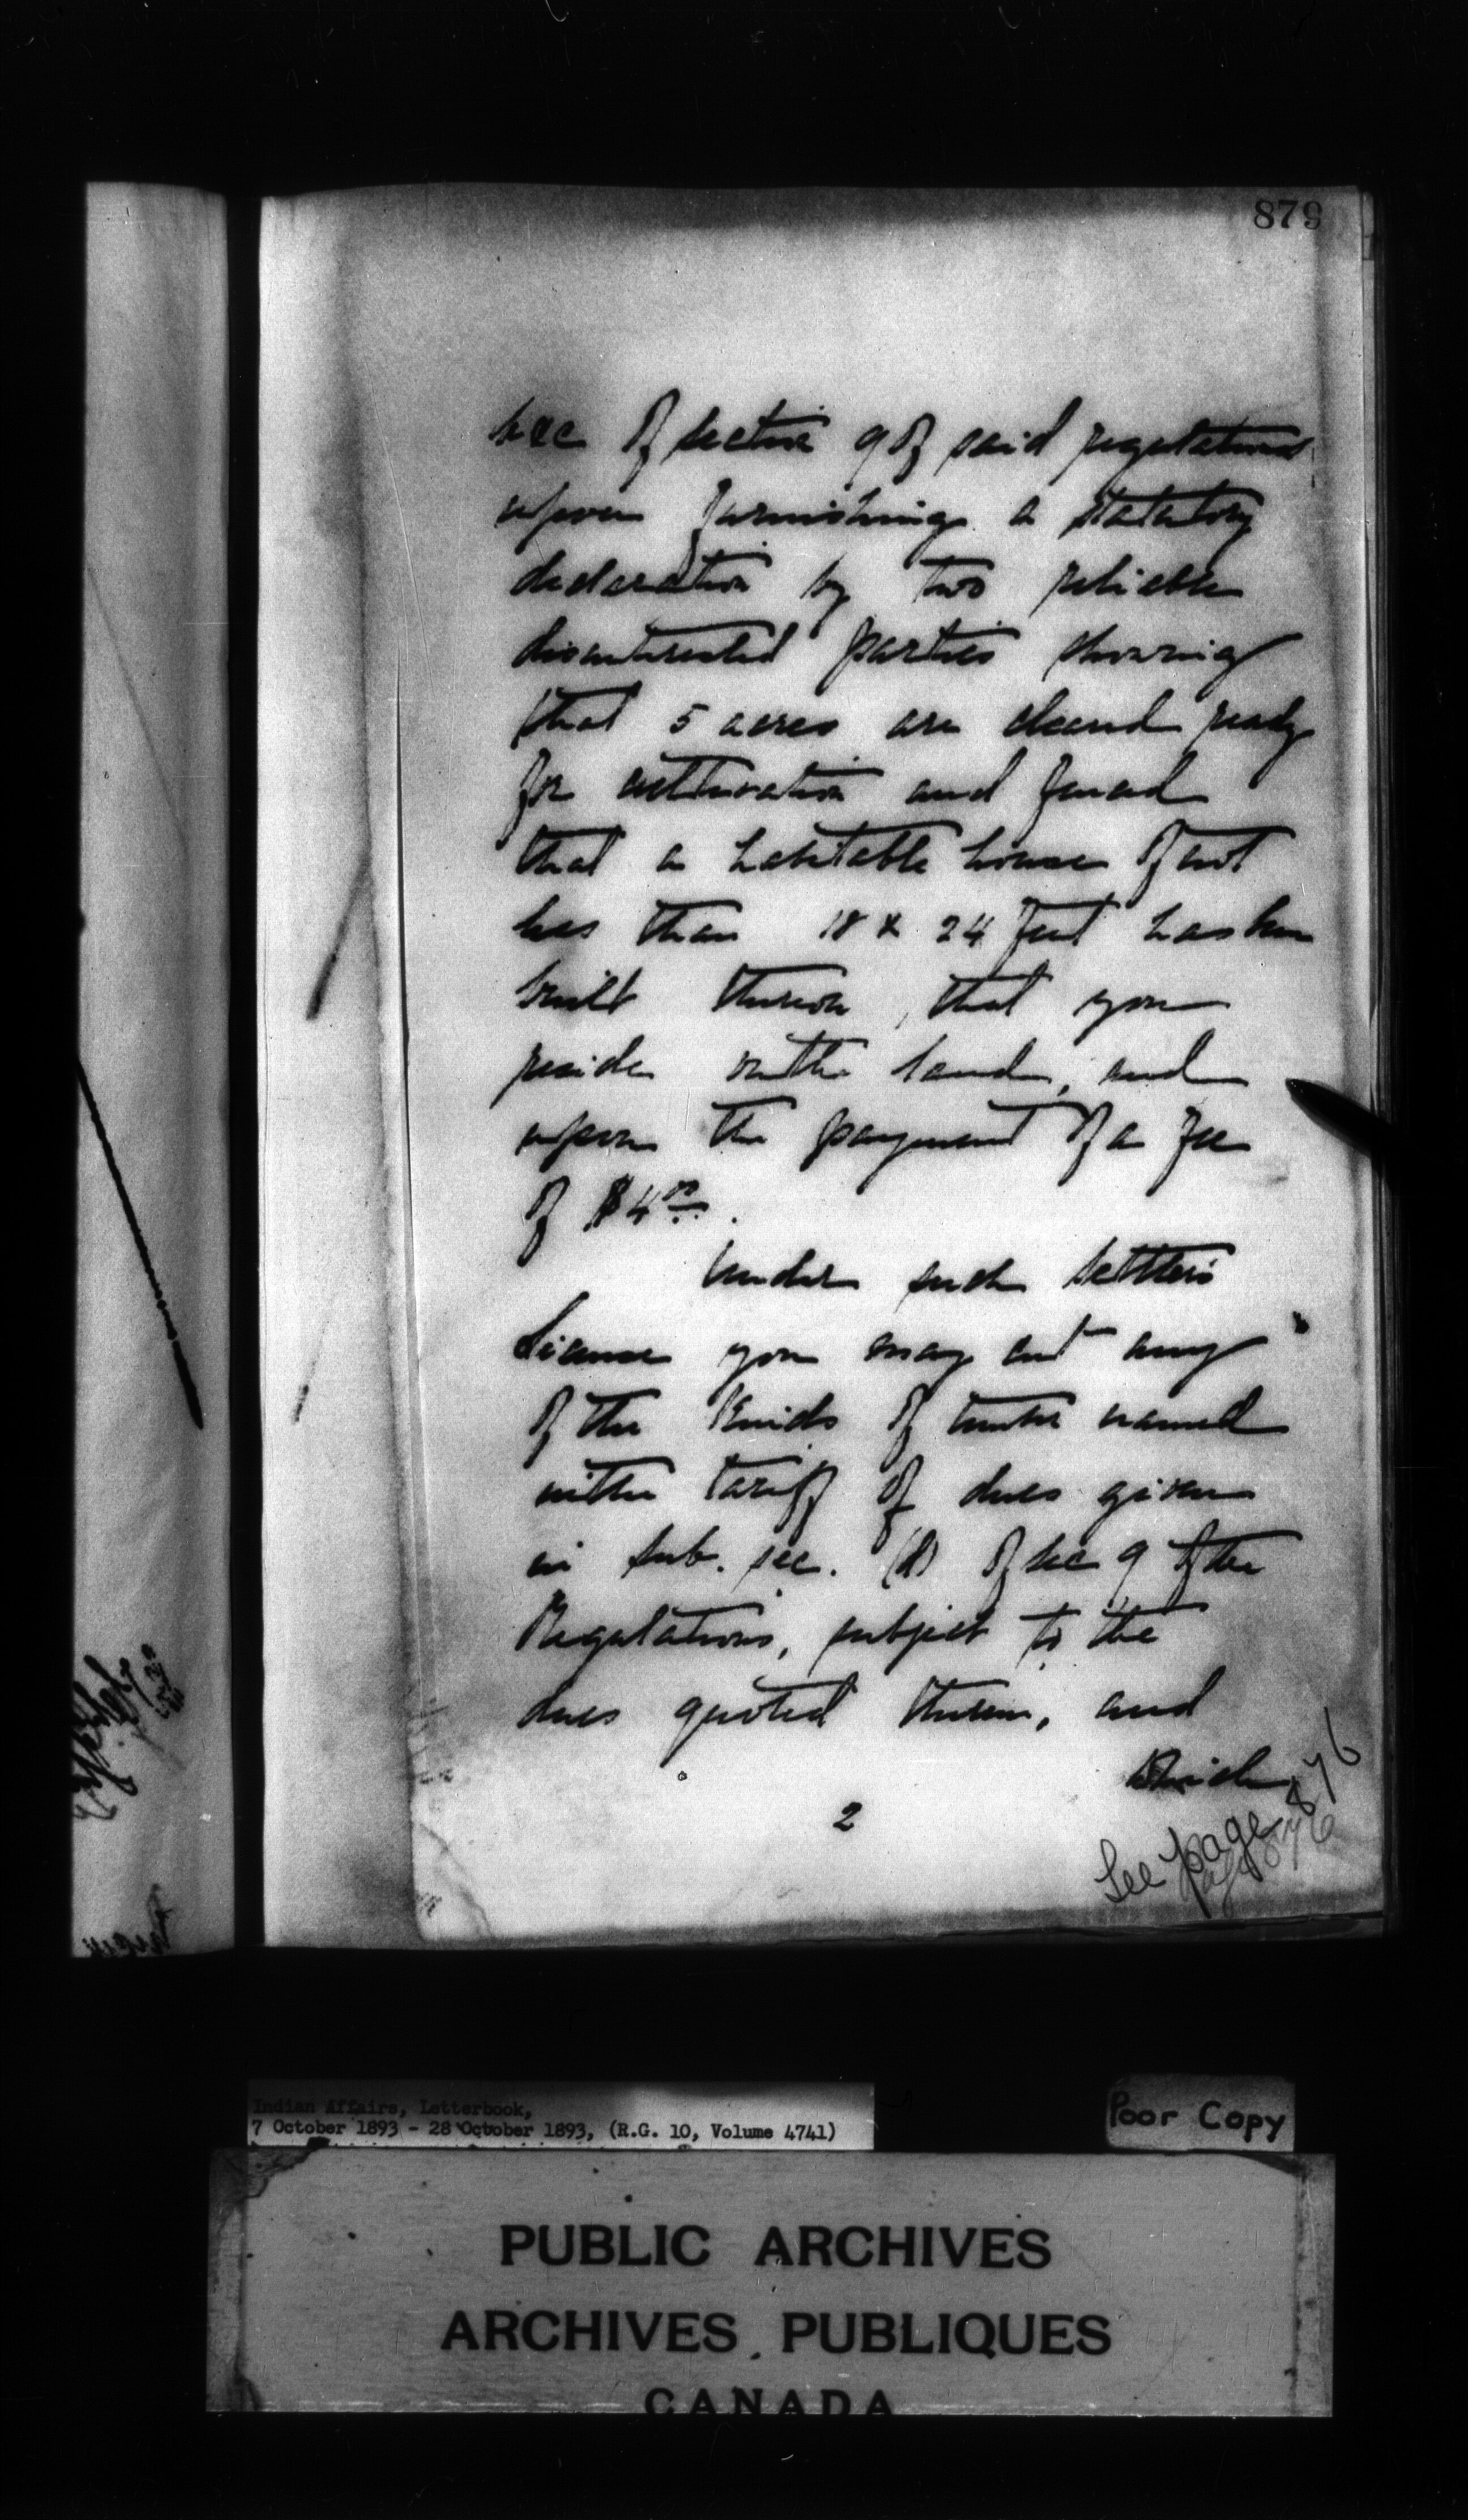 879
sec of section 9 of said regulations
upon furnishing a statutory
declaration by two reliable
disinterested parties showing
that 5 acres are cleared ready
for cultivation and fenced
that a habitable house of not
less than 18 x 24 feet has been
built thereon, that you
reside on the land, and
upon the payment of a fee
of $4.00.
Under such settlers
license you may cut any
of the kinds of timber named
in the tariff of dues given
in sub. sec. of sec 9 of the
Regulations, subject to the
dues quoted therein, and
which
2
See page 876
Indian Affairs, Letterbook,
7 October 1893 - 28 October 1893, (R.G. 10, Volume 4741)
Poor Copy
PUBLIC ARCHIVES
ARCHIVES PUBLIQUES
CANADA